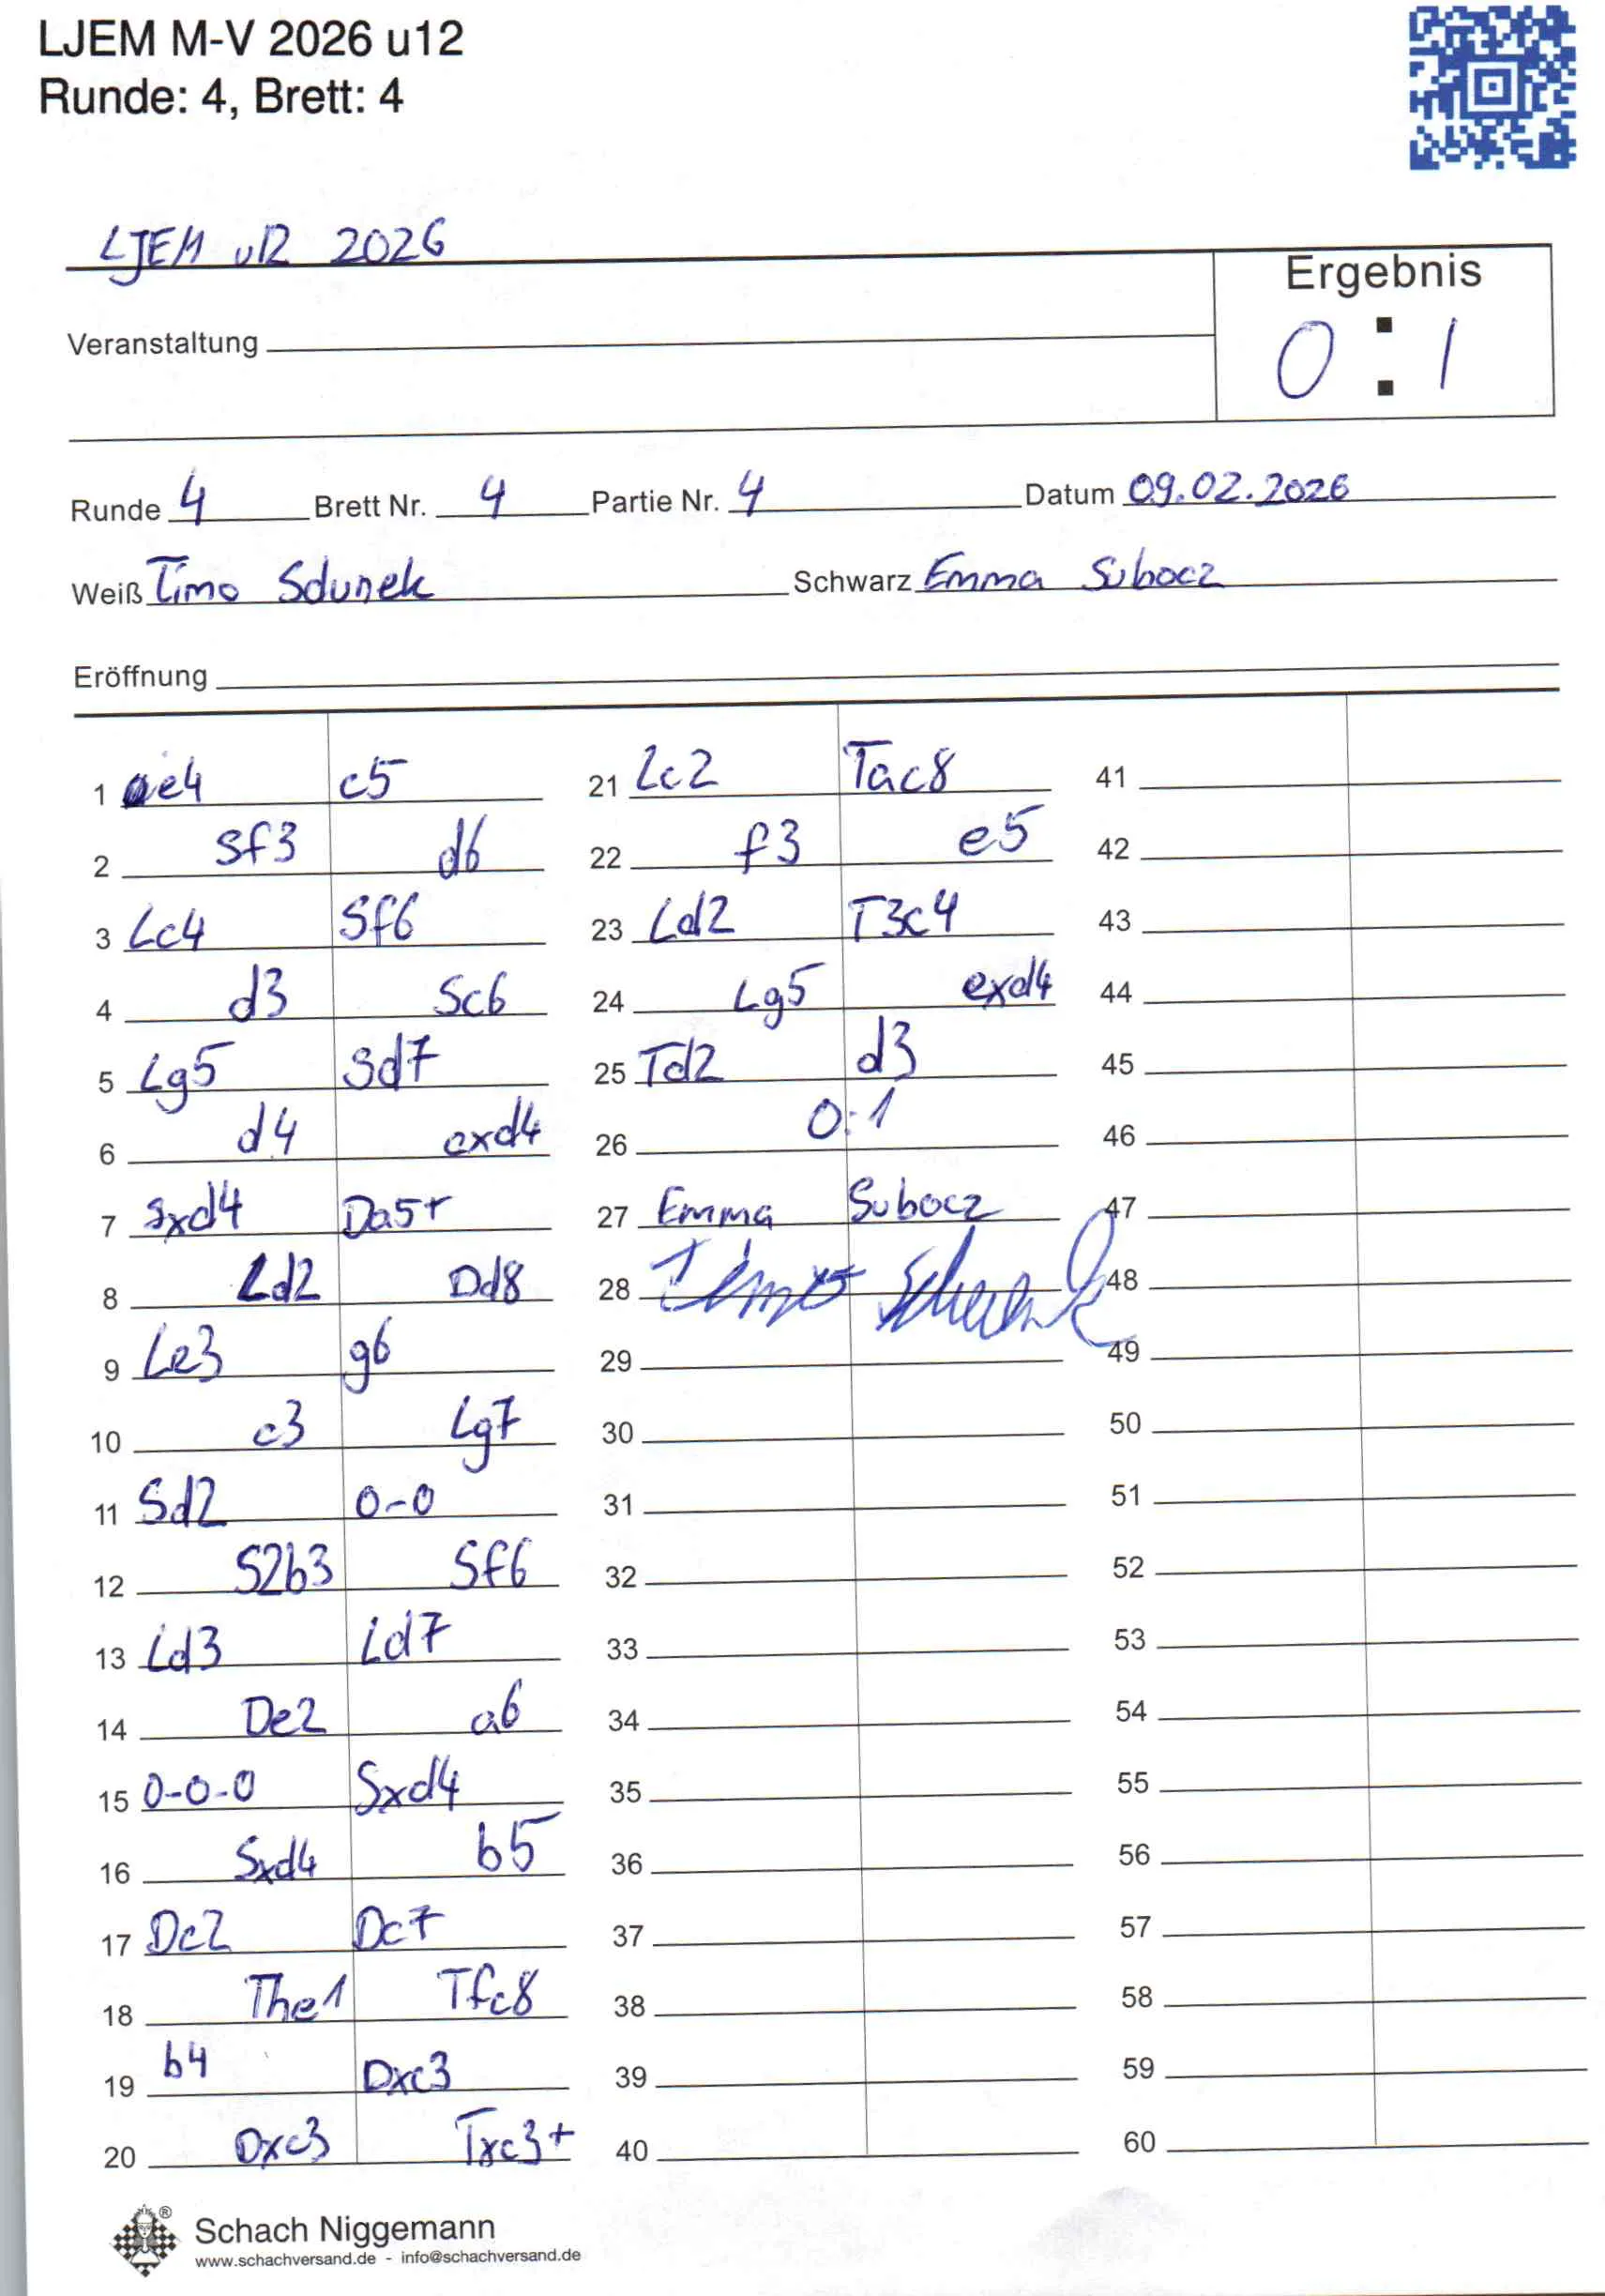 LJEM M-V 2026 u12
Runde: 4, Brett: 4
LJEM u12 2026
Ergebnis
Veranstaltung
0 : 1
Runde 4 Brett Nr. 4 Partie Nr. 4 Datum 09.02.2026
Weiß Timo Sdunek Schwarz Emma Subocz
Eröffnung
1 e4 c5
2 Sf3 d6
3 Lc4 Sf6
4 d3 Sc6
5 Lg5 Sd7
6 d4 cxd4
7 Sxd4 Da5+
8 Ld2 Dd8
9 Le3 g6
10 c3 Lg7
11 Sd2 0-0
12 S2b3 Sf6
13 Ld3 Ld7
14 De2 a6
15 0-0-0 Sxd4
16 Sxd4 b5
17 Dc2 Dc7
18 The1 Tfc8
19 b4 Dxc3
20 Dxc3 Txc3+
21 Lc2 Tac8
22 f3 e5
23 Ld2 T3c4
24 Lg5 exd4
25 Td2 d3
26 0:1
27 Emma Subocz
28 Timo Sdunek
29
30
31
32
33
34
35
36
37
38
39
40
41
42
43
44
45
46
47
48
49
50
51
52
53
54
55
56
57
58
59
60
®
Schach Niggemann
www.schachversand.de - info@schachversand.de